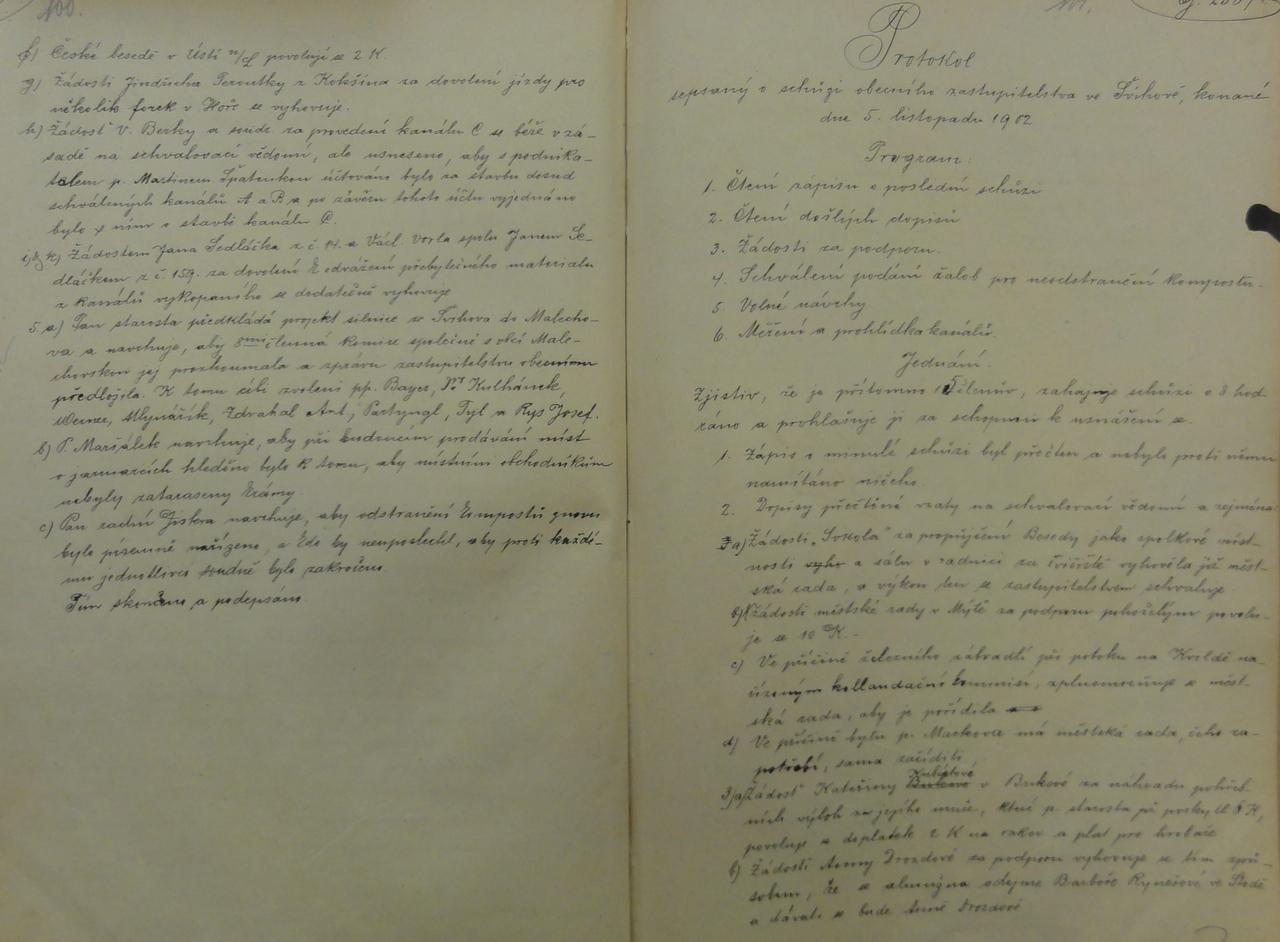 100.
f) České besedě v Ústí n/L povolují se 2 K.
g) Žádosti Jindřicha Peroutky z Kokšína za dovolení jízdy pro
několik forek v Hoře se vyhovuje.
h) Žádosť V. Berky a soudr. za provedení kanálu C se béře v zá-
sadě na schvalovací vědomí, ale usneseno, aby s podnika-
telem p. Martinem Špatenkou účtováno bylo za stavbu dosud
schválených kanálů A a B a po závěru tohoto účtu vyjednáno
bylo s ním o stavbě kanálu C.
i) & k) Žádostem Jana Sedláčka z č. 14. a Václ. Vorla spolu Janem Se-
dláčkem z č. 159. za dovolení k odvážení přebytečného materialu
z kanálů vykopaného se dodatečně vyhovuje
5. a) Pan starosta předkládá projekt silnice ze Švihova do Malecho-
va a navrhuje, aby 8mi členná komise společně s obcí Male-
chovskou jej prozkoumala a zprávu zastupitelstvu obecnímu
předložila. K tomu cíli zvoleni pp. Bayer, Dr Kulhánek,
Werner, Mlynářík, Zdrahal Ant., Partyngl, Tyl a Rys Josef.
b) P. Maršálek navrhuje, aby při budoucím prodávání míst
o jarmarcích hleděno bylo k tomu, aby místním obchodníkům
nebyly zataraseny krámy.
c) Pan radní Jiskra navrhuje, aby odstranění kompostů znovu
bylo písemně nařízeno, a kdo by neuposlechl, aby proti každé-
mu jednotlivci soudně bylo zakročeno
Tím skončeno a podepsáno.
101.
Protokol
sepsaný o schůzi obecního zastupitelstva ve Švihově, konané
dne 5. listopadu 1902
Program:
1. Čtení zápisu o poslední schůzi
2. Čtení došlých dopisů
3. Žádosti za podporu.
4. Schválení podání žalob pro neodstranění kompostu.
5. Volné návrhy
6. Měření a prohlídka kanálů.
Jednání.
Zjistiv, že je přítomno členův, zahajuje schůzi o 8 hod
ráno a prohlašuje ji za schopnou k usnášení se.
1. Zápis o minulé schůzi byl přečten a nebylo proti němu
namítáno ničeho.
2. Dopisy přečtěné vzaty na schvalovací vědomí a zejména
a) Žádosti „Sokola" za propůjčení Besedy jako spolkové míst-
nosti vyho a sálu v radnici za cvičiště vyhověla již měst-
ská rada, a výkon ten se zastupitelstvem schvaluje.
b) Žádosti městské rady v Mýtě za podporu pohořelým povolu-
je se 10 K. -
c) Ve příčině železního zábradlí při potoku na Kvildě na-
řízeným kollaudační kommisí, zplnomocňuje se měst-
ská rada, aby je pořídila
d) Ve příčině bytu p. Mackova má městská rada, čeho za-
potřebí, sama zaříditi
Kubátové
3) a) Žádosť Kateřiny Bukové v Bukové za náhradu pohřeb-
ních výloh za jejího muže, které p. starosta již poskytl 8 K,
povoluje se doplatek 2 K na rakev a plat pro hrobaře
b) Žádosti Anny Drozdové za podporu vyhovuje se tím způ-
sobem, že se almužna odejme Barboře Rynešové ve Štodě
a dávati se bude Anně Drozdové